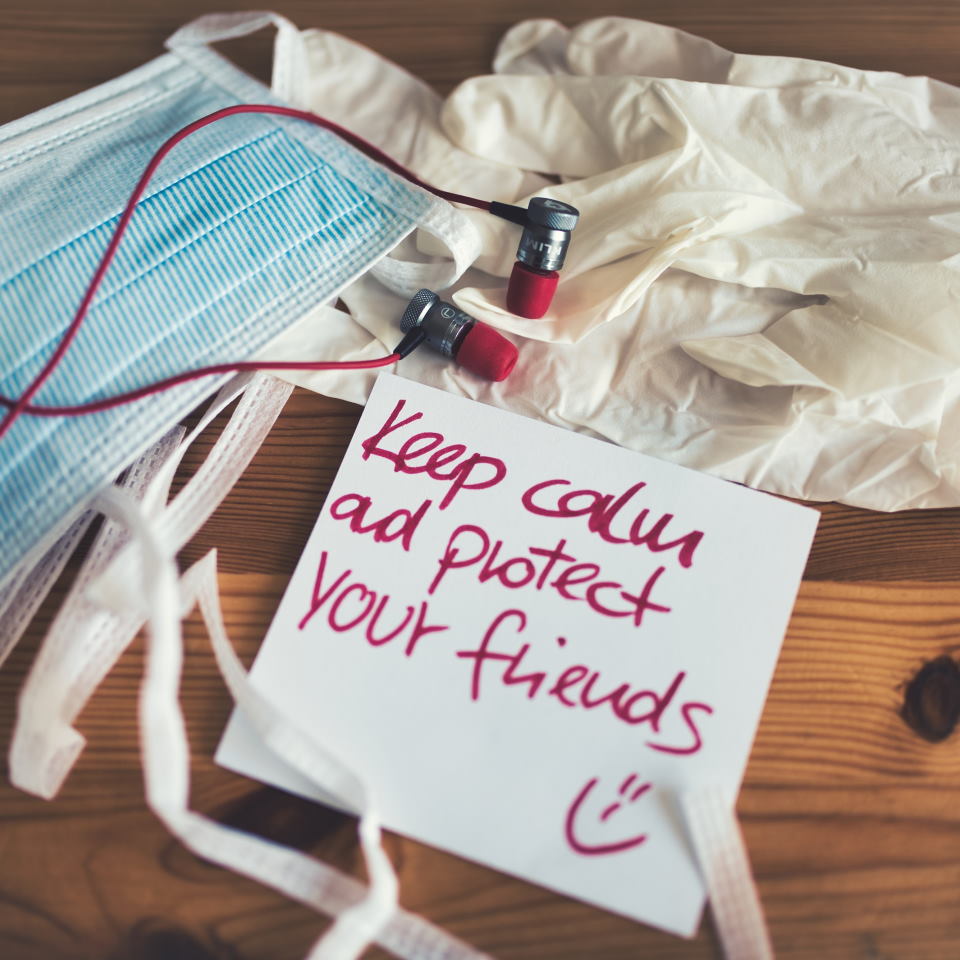 KLIM
Keep calm
ad protect
your friends